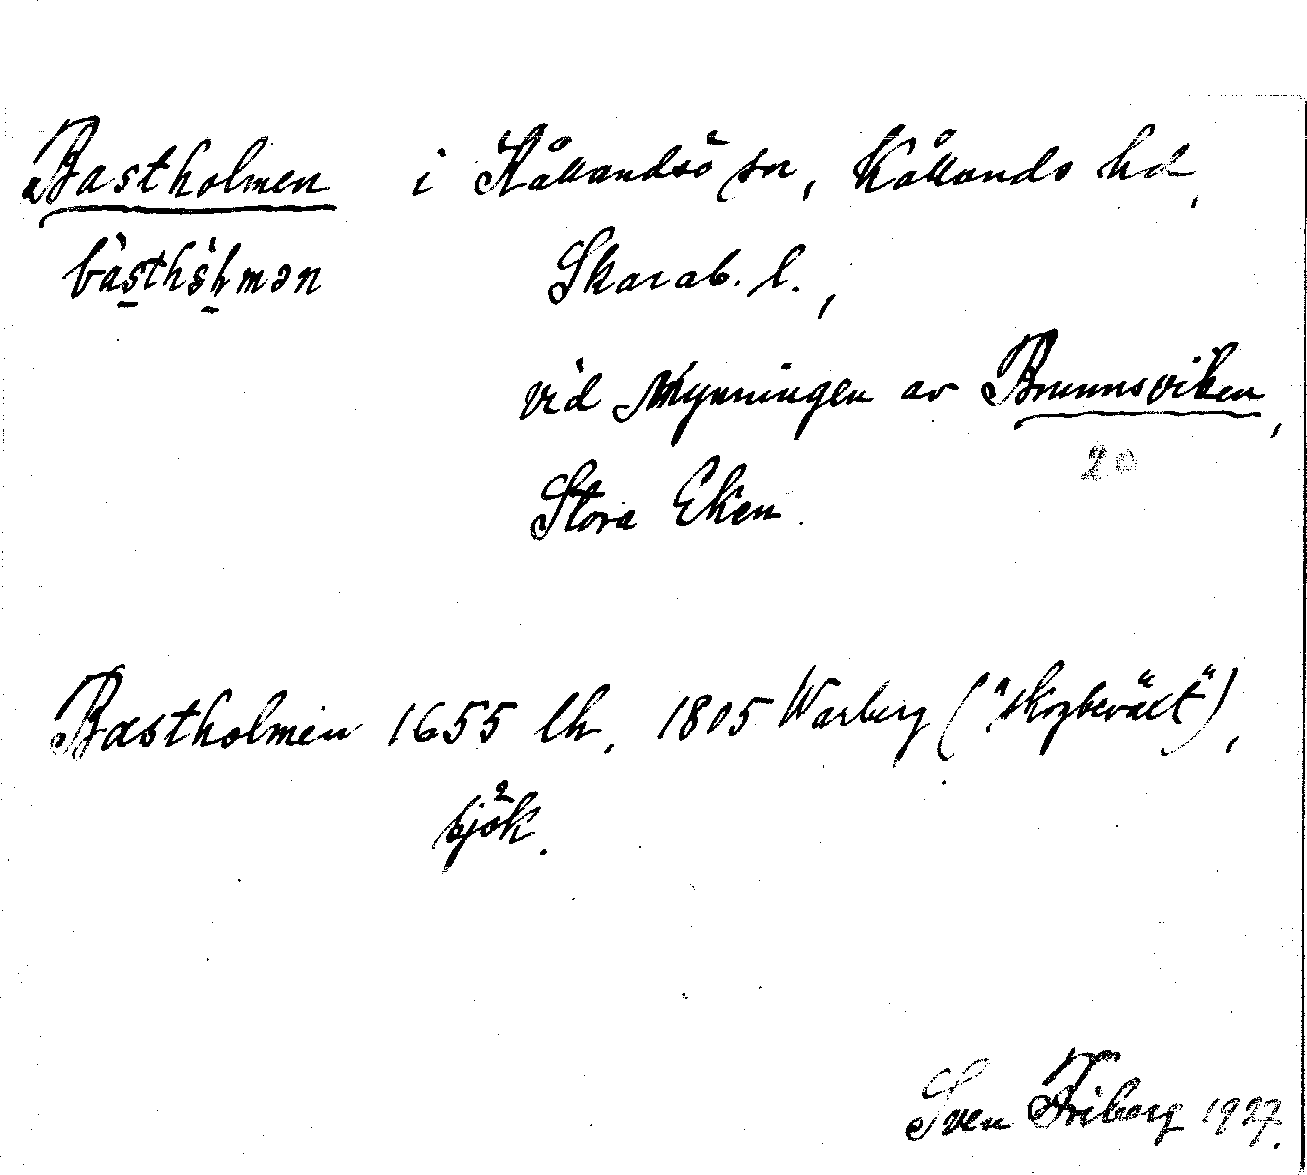 Bastholmen i Kållandsö sn, Kållands hd,
bàsthòḷmən Skarab. l.,
vid Mynningen av Brunnsviken,
20
Stora Eken.
Bastholmen 1655 lk, 1805 Warberg ("skogbeväxt"),
sjök.
Sven Friberg 1927.